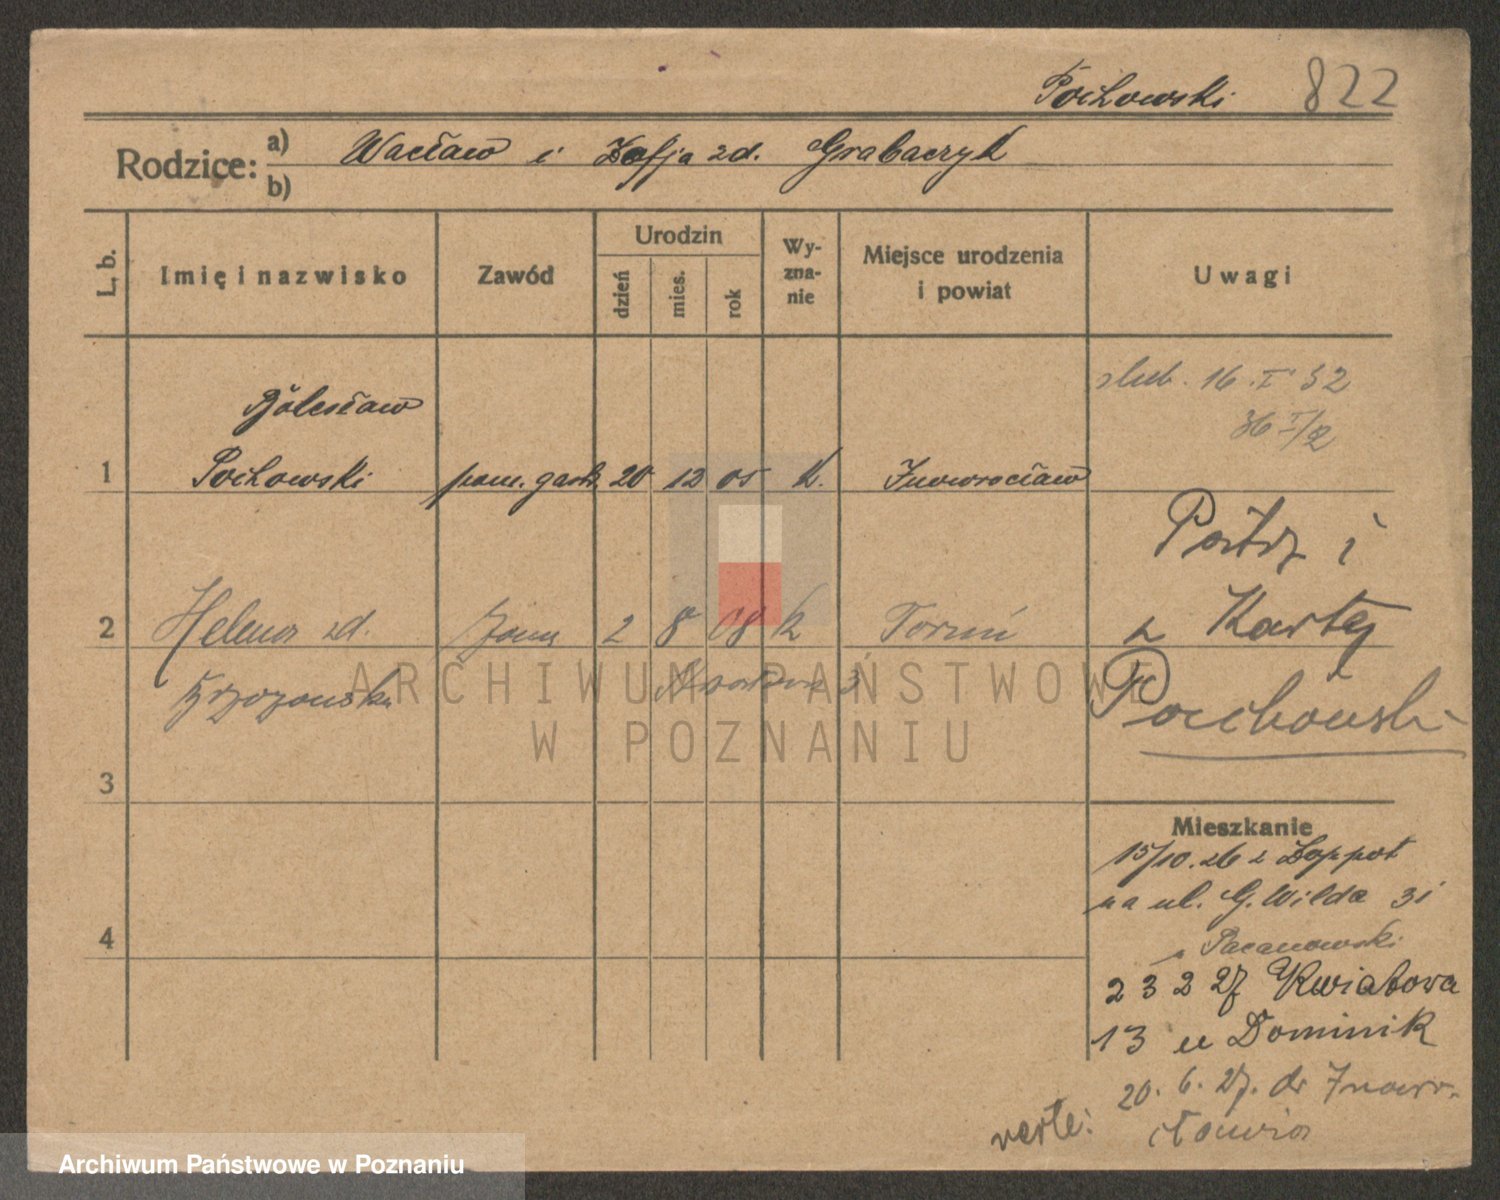 Pochowski 822
Rodzice: a) Wacław i Zofja zd. Grabaczyk
b)
L. b. Imię i nazwisko Zawód Urodzin dzień mies. rok Wy-zna-nie Miejsce urodzenia i powiat Uwagi
ślub. 16. I 32
Bolesław
1 Pochowski pom. gastr. 20 12 05 k. Inowrocław
2 Helena zd. żona 2 8 08 k Toruń
z Kartę
Pochowski
ARCHIWUM PAŃSTWOWE
W POZNANIU
3
Mieszkanie
15/10. 26 z Zoppot
na ul. G. Wilda 31
Pacanowski
4
23 2 27 Kwiatowa
13 u Dominik
20. 6. 27. do Inowro-
cławia
verte:
Archiwum Państwowe w Poznaniu